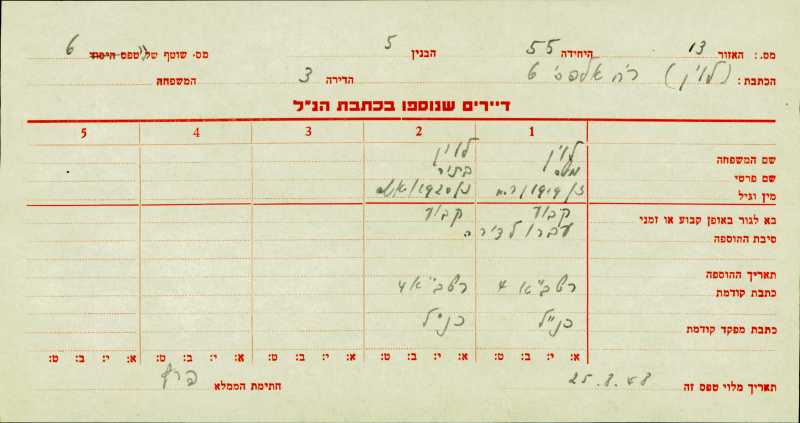 מס.: האזור 13 היחידה 55 הבנין 5 מס. שוטף של טפס היסוד 6
הכתבת: (לוין) רח' אלפסי 6 הדירה 3 המשפחה
דיירים שנוספו בכתבת הנ"ל
1 2 3 4 5
שם המשפחה לוין לוין
שם פרטי משה
מין וגיל ז/1919/ 1920/
בא לגור באופן קבוע או זמני קבוע קבוע
סיבת ההוספה עברו לדירה
תאריך ההוספה
כתבת קודמת רשב"א 4 רשב"א 4
כתבת מפקד קודמת כנ"ל כנ"ל
א: י: ב: ט: א: י: ב: ט: א: י: ב: ט: א: י: ב: ט: א: י: ב: ט:
תאריך מלוי טפס זה 25.8.48 חתימת הממלא